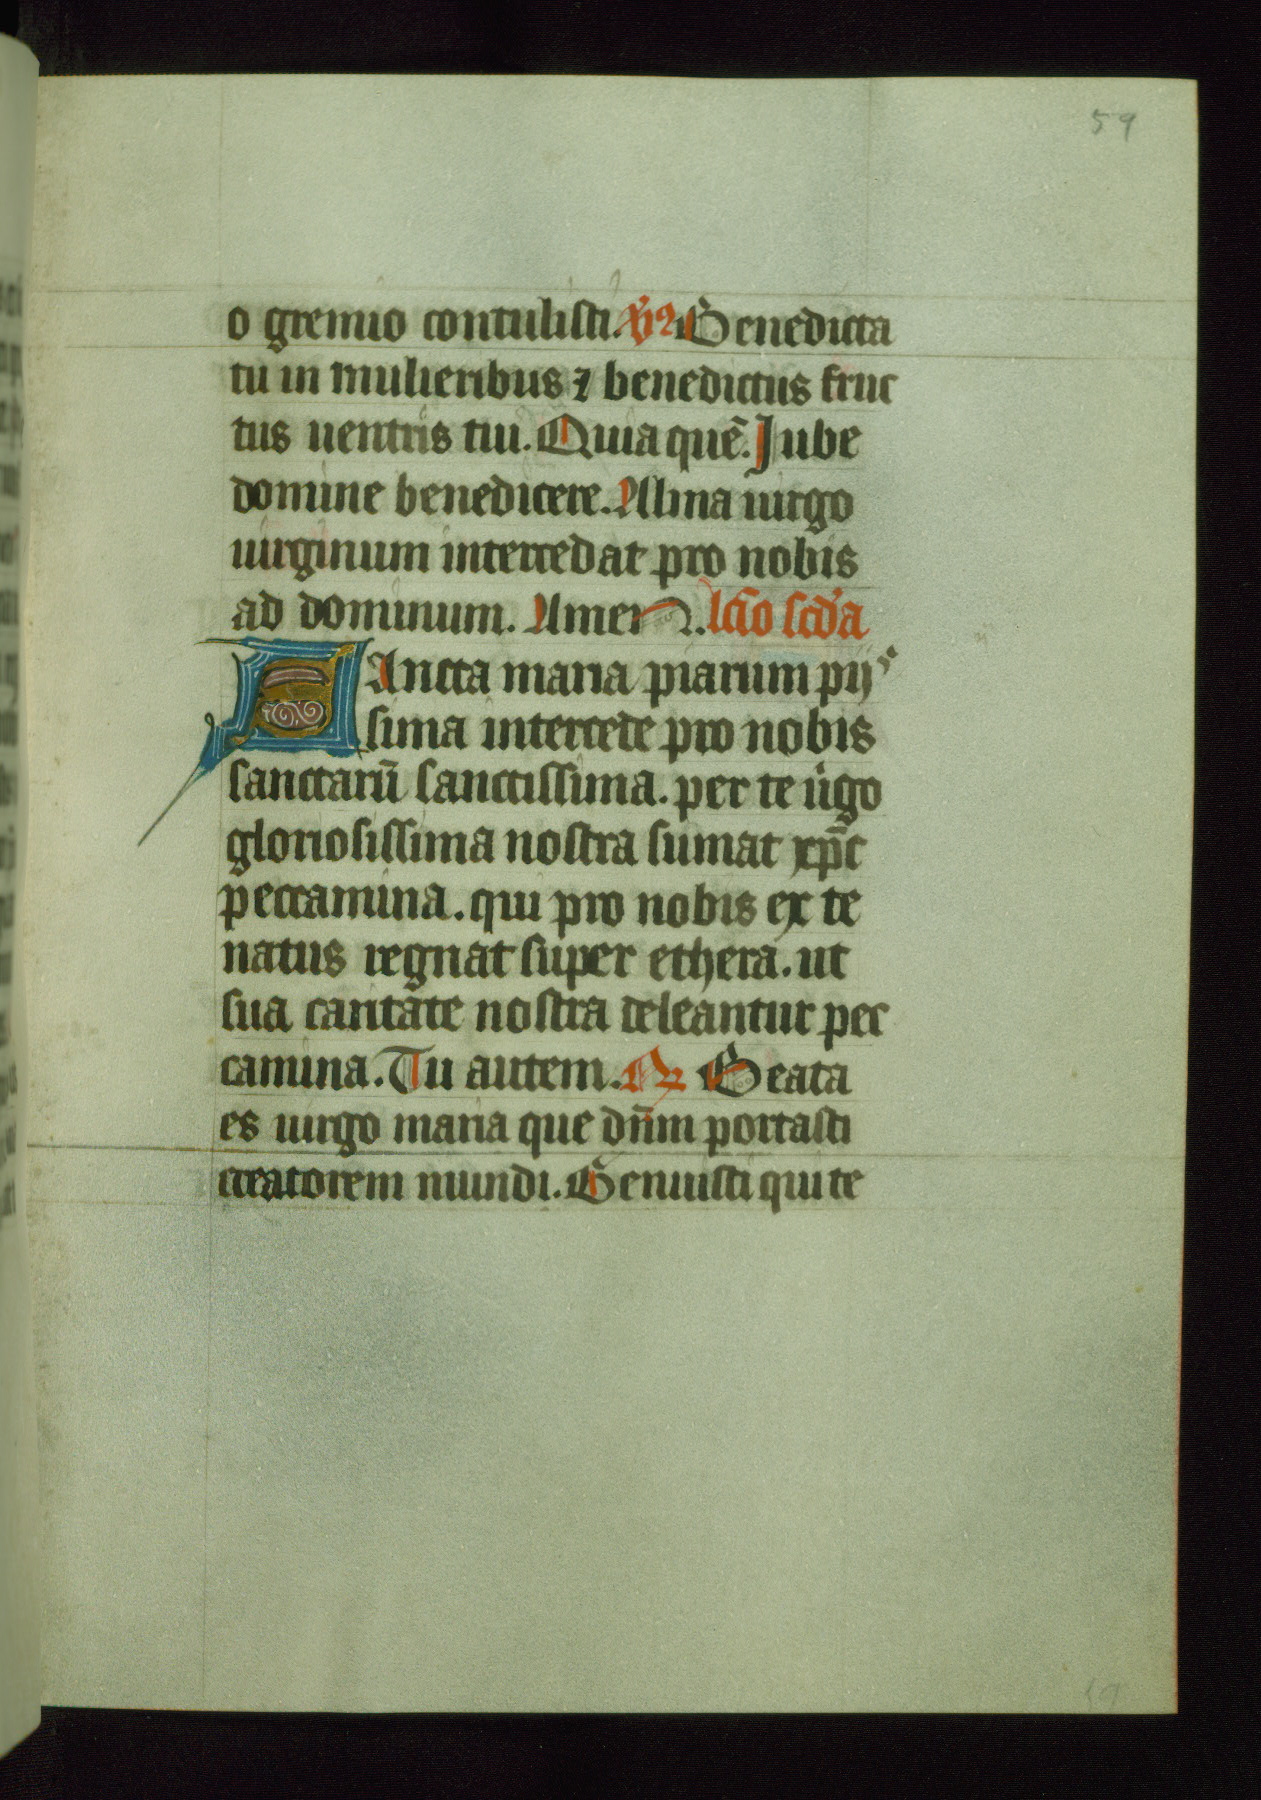 59
o gremio contulisti. v̾s Benedicta
tu in mulieribus ⁊ benedictus fruc
tus uentris tui. Quia quē. Jube
domine benedicere. Alma uirgo
uirginum intercedat pro nobis
ad dominum. Amen. lc̄io scd̾a
SAncta maria piarum pijs
sima intercede pro nobis
sanctarū sanctissima. per te uͥgo
gloriosissima nostra sumat xp̄c
peccamina. qui pro nobis ex te
natus regnat super ethera. ut
sua caritate nostra deleantur pec
camina. Tu autem. R̷ Beata
es uirgo maria que dn̄m portasti
creatorem mundi. Genuisti qui te